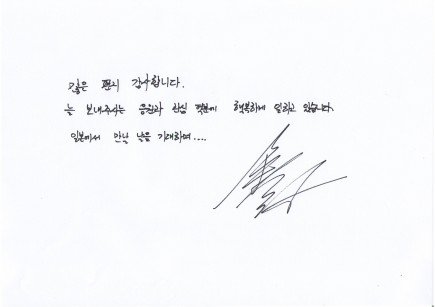 깊은 편지 감사합니다.
늘 보내주시는 응원과 관심 덕분에 행복하게 일하고 있습니다.
일본에서 만날 날을 기대하며....